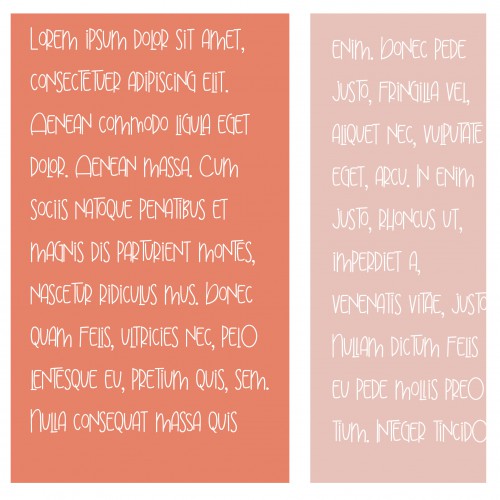 Lorem ipsum dolor sit amet,
consectetuer adipiscing elit.
Aenean commodo ligula eget
dolor. Aenean massa. Cum
sociis natoque penatibus et
magnis dis parturient montes,
nascetur ridiculus mus. Donec
quam felis, ultricies nec, pelO
lentesque eu, pretium quis, sem.
Nulla consequat massa quis
enim. Donec pede
justo, fringilla vel,
aliquet nec, vulputate
eget, arcu. In enim
justo, rhoncus ut,
imperdiet a,
venenatis vitae, justo
Nullam dictum felis
eu pede mollis preO
tium. Integer tincidO